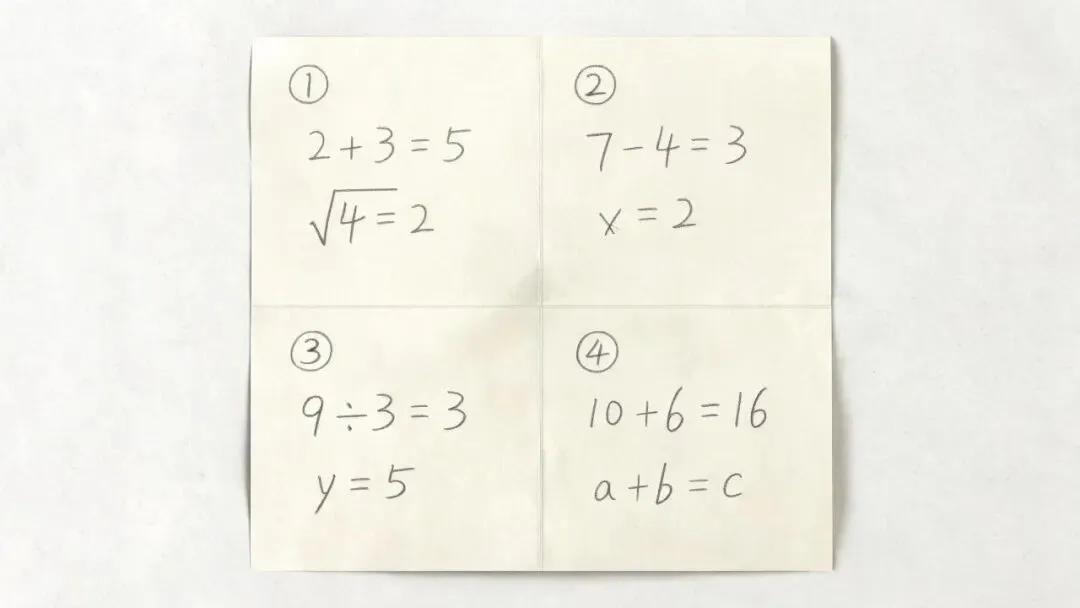 ①
2 + 3 = 5
√4 = 2
②
7 - 4 = 3
x = 2
③
9 ÷ 3 = 3
y = 5
④
10 + 6 = 16
a + b = c